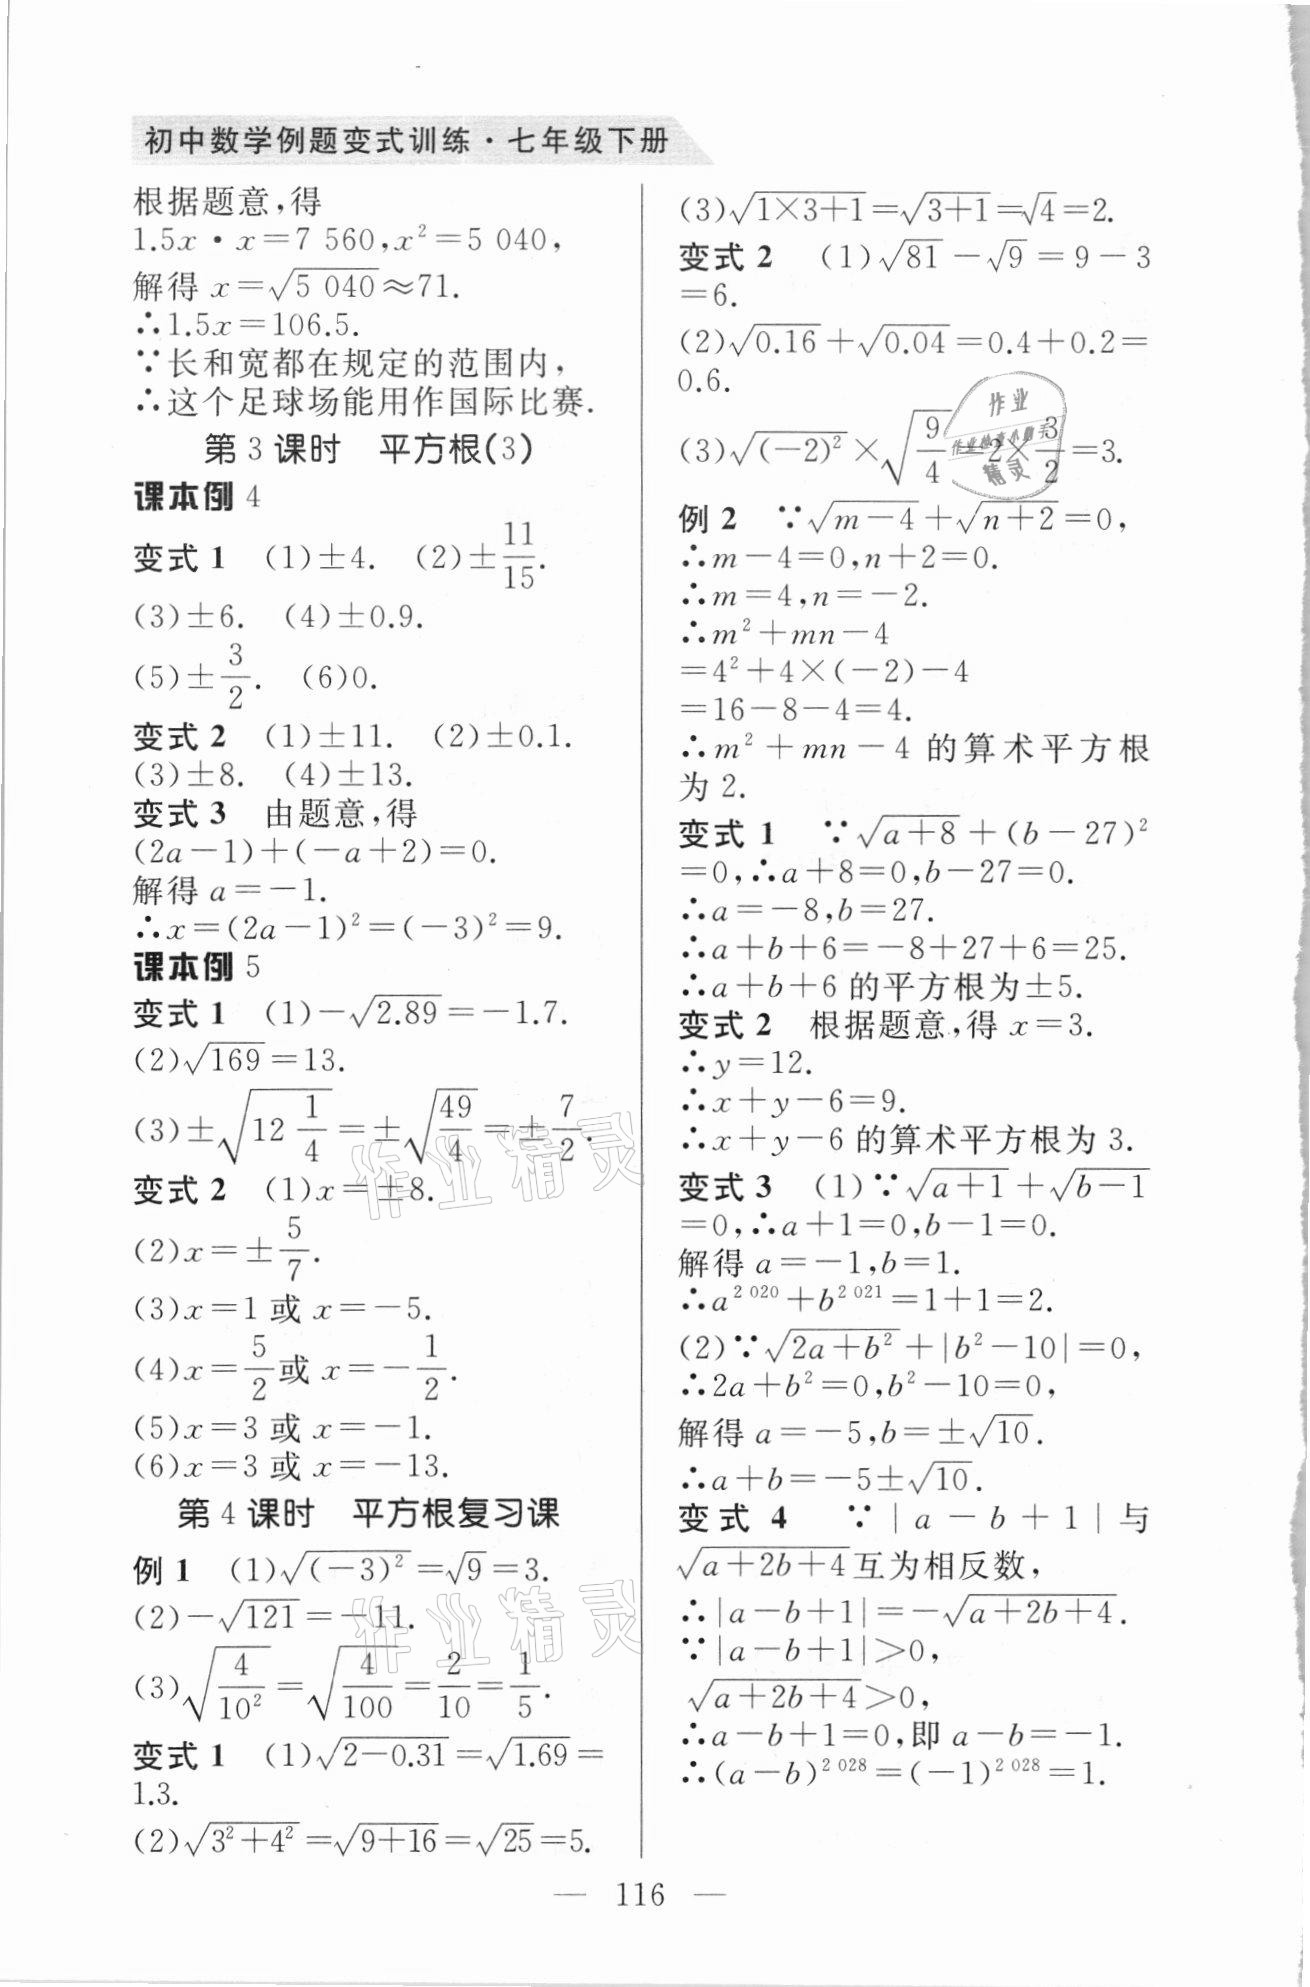 初中数学例题变式训练·七年级下册
根据题意,得
1.5x·x=7 560,x²=5 040,
解得 x=√5 040≈71.
∴1.5x=106.5.
∵长和宽都在规定的范围内,
∴这个足球场能用作国际比赛.
第 3 课时 平方根(3)
课本例 4
变式 1 (1)±4. (2)±11/15.
(3)±6. (4)±0.9.
(5)±3/2. (6)0.
变式 2 (1)±11. (2)±0.1.
(3)±8. (4)±13.
变式 3 由题意,得
(2a-1)+(-a+2)=0.
解得 a=-1.
∴x=(2a-1)²=(-3)²=9.
课本例 5
变式 1 (1)-√2.89=-1.7.
(2)√169=13.
(3)±√(12 1/4)=±√(49/4)=±7/2.
变式 2 (1)x=±8.
(2)x=±5/7.
(3)x=1 或 x=-5.
(4)x=5/2 或 x=-1/2.
(5)x=3 或 x=-1.
(6)x=3 或 x=-13.
第 4 课时 平方根复习课
例 1 (1)√((-3)²)=√9=3.
(2)-√121=-11.
(3)√(4/10²)=√(4/100)=2/10=1/5.
变式 1 (1)√(2-0.31)=√1.69=
1.3.
(2)√(3²+4²)=√(9+16)=√25=5.
(3)√(1×3+1)=√(3+1)=√4=2.
变式 2 (1)√81-√9=9-3
=6.
(2)√0.16+√0.04=0.4+0.2=
0.6.
(3)√((-2)²)×√(9/4)=2×3/2=3.
例 2 ∵√(m-4)+√(n+2)=0,
∴m-4=0,n+2=0.
∴m=4,n=-2.
∴m²+mn-4
=4²+4×(-2)-4
=16-8-4=4.
∴m²+mn-4 的算术平方根
为 2.
变式 1 ∵√(a+8)+(b-27)²
=0,∴a+8=0,b-27=0.
∴a=-8,b=27.
∴a+b+6=-8+27+6=25.
∴a+b+6 的平方根为±5.
变式 2 根据题意,得 x=3.
∴y=12.
∴x+y-6=9.
∴x+y-6 的算术平方根为 3.
变式 3 (1)∵√(a+1)+√(b-1)
=0,∴a+1=0,b-1=0.
解得 a=-1,b=1.
∴a²⁰²⁰+b²⁰²¹=1+1=2.
(2)∵√(2a+b²)+|b²-10|=0,
∴2a+b²=0,b²-10=0,
解得 a=-5,b=±√10.
∴a+b=-5±√10.
变式 4 ∵|a-b+1|与
√(a+2b+4)互为相反数,
∴|a-b+1|=-√(a+2b+4).
∵|a-b+1|>0,
√(a+2b+4)>0,
∴a-b+1=0,即 a-b=-1.
∴(a-b)²⁰²⁸=(-1)²⁰²⁸=1.
— 116 —
作业
精灵
作业精灵
作业精灵